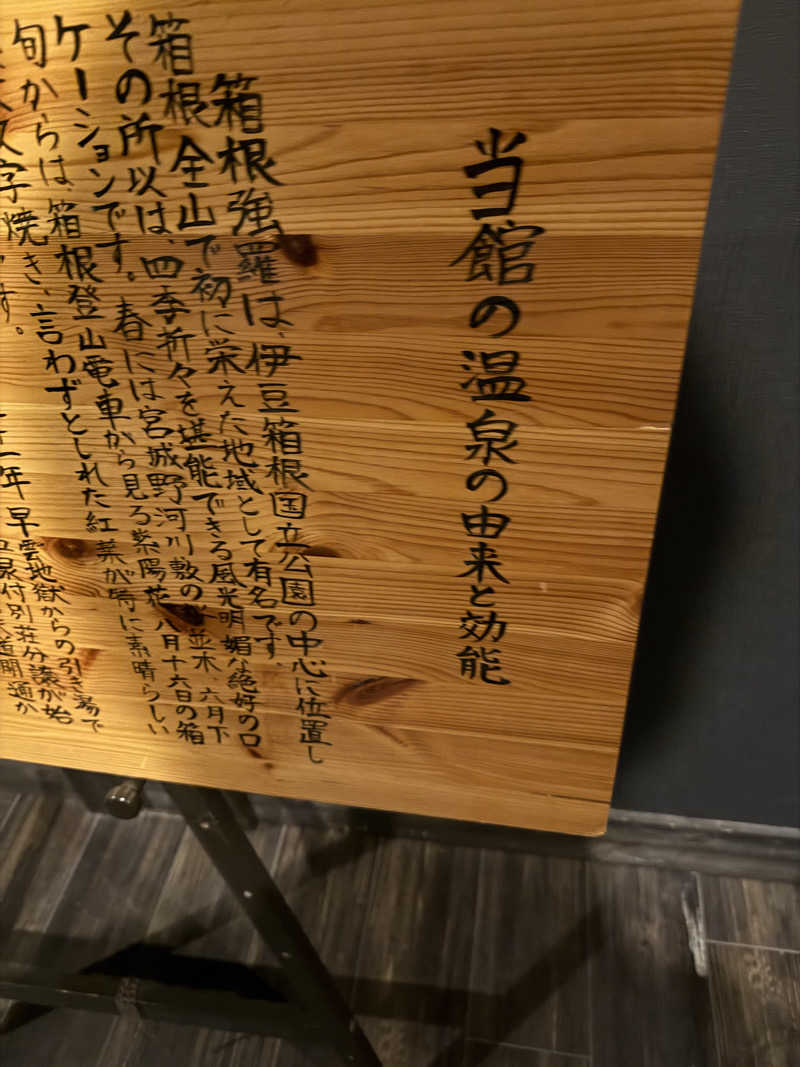 当館の温泉の由来と効能
箱根強羅は、伊豆箱根国立公園の中心に位置し
箱根全山で初に栄えた地域として有名です。
その所以は、四季折々を堪能できる風光明媚な絶好のロ
ケーションです。春には宮城野河川敷の 並木、六月下
旬からは、箱根登山電車から見る紫陽花、八月十六日の箱
文字焼き、言わずとしれた紅葉が特に素晴らしい
す。
年 早雲地獄からの引き湯で
泉付別荘分譲が始
道開通か